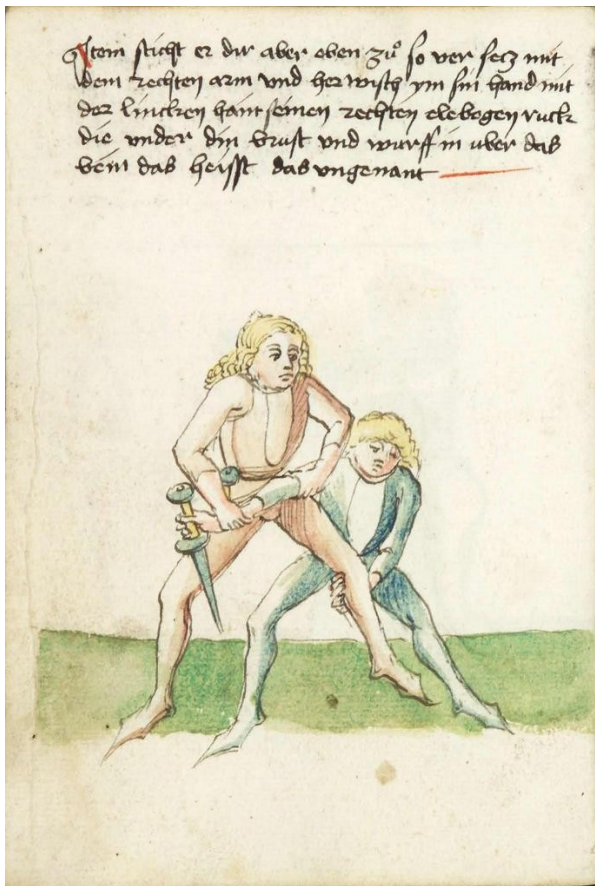 Item sticht er dir aber oben zuͦ so ver secz mit
dem rechten arm vnd her wisch ym sin hand mit
der lincken hant seinen rechten elebogen ruck
die vnder din brust vnd wurff in uber das
bein das heisst das vngenant